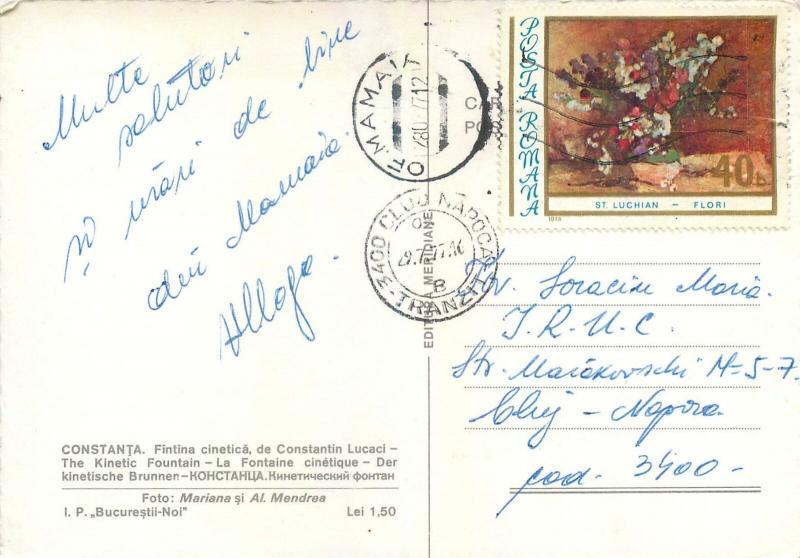 Multe
salutări
și urări de bine
din Mamaia.
CONSTANȚA. Fîntîna cinetică, de Constantin Lucaci –
The Kinetic Fountain – La Fontaine cinétique – Der
kinetische Brunnen – КОНСТАНЦА. Кинетический фонтан
Foto: Mariana și Al. Mendrea
I. P. „Bucureștii-Noi" Lei 1,50
EDITURA MERIDIANE
OF. MAMAIA
3400 CLUJ NAPOCA
29.7.77.16
B
TRANZIT
POSTA ROMANA
40b
ST. LUCHIAN – FLORI
1976
Maria.
Str. Maiakovschi N-5-7
Cluj – Napoca.
cod. 3400 –